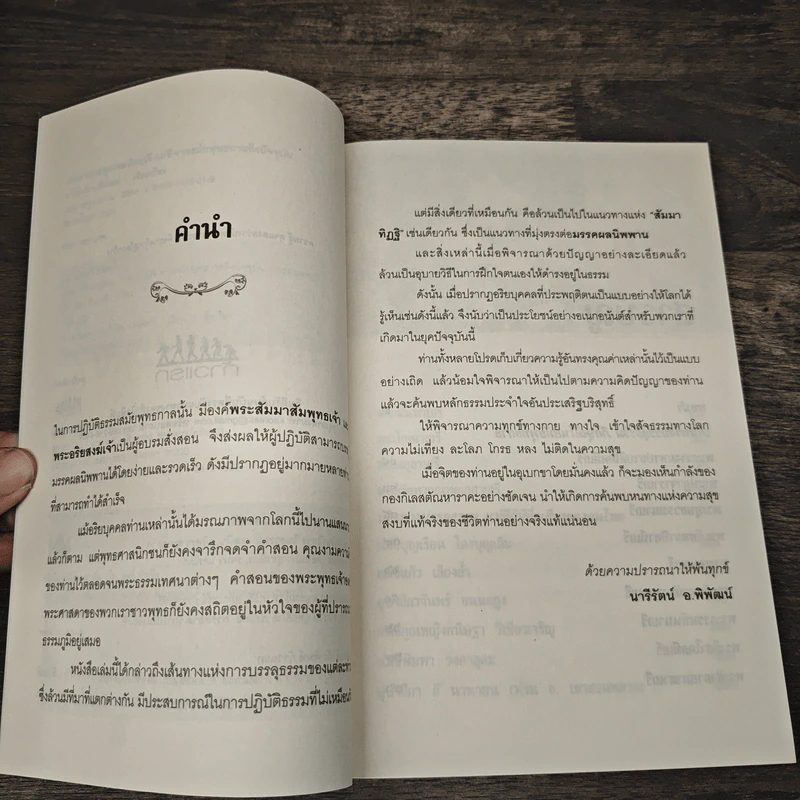 คำนำ
ในการปฏิบัติธรรมสมัยพุทธกาลนั้น มีองค์พระสัมมาสัมพุทธเจ้า
พระอริยสงฆ์เจ้าเป็นผู้อบรมสั่งสอน จึงส่งผลให้ผู้ปฏิบัติสามารถ
มรรคผลนิพพานได้โดยง่ายและรวดเร็ว ดังมีปรากฏอยู่มากมายหลาย
ที่สามารถทำได้สำเร็จ
แม้อริยบุคคลท่านเหล่านั้นได้มรณภาพจากโลกนี้ไปนาน
แล้วก็ตาม แต่พุทธศาสนิกชนก็ยังคงจารึกจดจำคำสอน คุณงามความ
ของท่านไว้ตลอดจนพระธรรมเทศนาต่างๆ คำสอนของพระพุทธเจ้า
พระศาสดาของพวกเราชาวพุทธก็ยังคงสถิตอยู่ในหัวใจของผู้ที่
ธรรมภูมิอยู่เสมอ
หนังสือเล่มนี้ได้กล่าวถึงเส้นทางแห่งการบรรลุธรรมของแต่ละ
ซึ่งล้วนมีที่มาที่แตกต่างกัน มีประสบการณ์ในการปฏิบัติธรรมที่ไม่เหมือน
แต่มีสิ่งเดียวที่เหมือนกัน คือล้วนเป็นไปในแนวทางแห่ง "สัมมา
ทิฏฐิ" เช่นเดียวกัน ซึ่งเป็นแนวทางที่มุ่งตรงต่อมรรคผลนิพพาน
และสิ่งเหล่านี้เมื่อพิจารณาด้วยปัญญาอย่างละเอียดแล้ว
ล้วนเป็นอุบายวิธีในการฝึกใจตนเองให้ดำรงอยู่ในธรรม
ดังนั้น เมื่อปรากฏอริยบุคคลที่ประพฤติตนเป็นแบบอย่างให้โลกได้
รู้เห็นเช่นดังนี้แล้ว จึงนับว่าเป็นประโยชน์อย่างอเนกอนันต์สำหรับพวกเราที่
เกิดมาในยุคปัจจุบันนี้
ท่านทั้งหลายโปรดเก็บเกี่ยวความรู้อันทรงคุณค่าเหล่านั้นไว้เป็นแบบ
อย่างเถิด แล้วน้อมใจพิจารณาให้เป็นไปตามความคิดปัญญาของท่าน
แล้วจะค้นพบหลักธรรมประจำใจอันประเสริฐบริสุทธิ์
ให้พิจารณาความทุกข์ทางกาย ทางใจ เข้าใจสัจธรรมทางโลก
ความไม่เที่ยง ละโลภ โกรธ หลง ไม่ติดในความสุข
เมื่อจิตของท่านอยู่ในอุเบกขาโดยมั่นคงแล้ว ก็จะมองเห็นกำลังของ
กองกิเลสตัณหาราคะอย่างชัดเจน นำให้เกิดการค้นพบหนทางแห่งความสุข
สงบที่แท้จริงของชีวิตท่านอย่างจริงแท้แน่นอน
ด้วยความปรารถนาให้พ้นทุกข์
นารีรัตน์ อ.พิพัฒน์